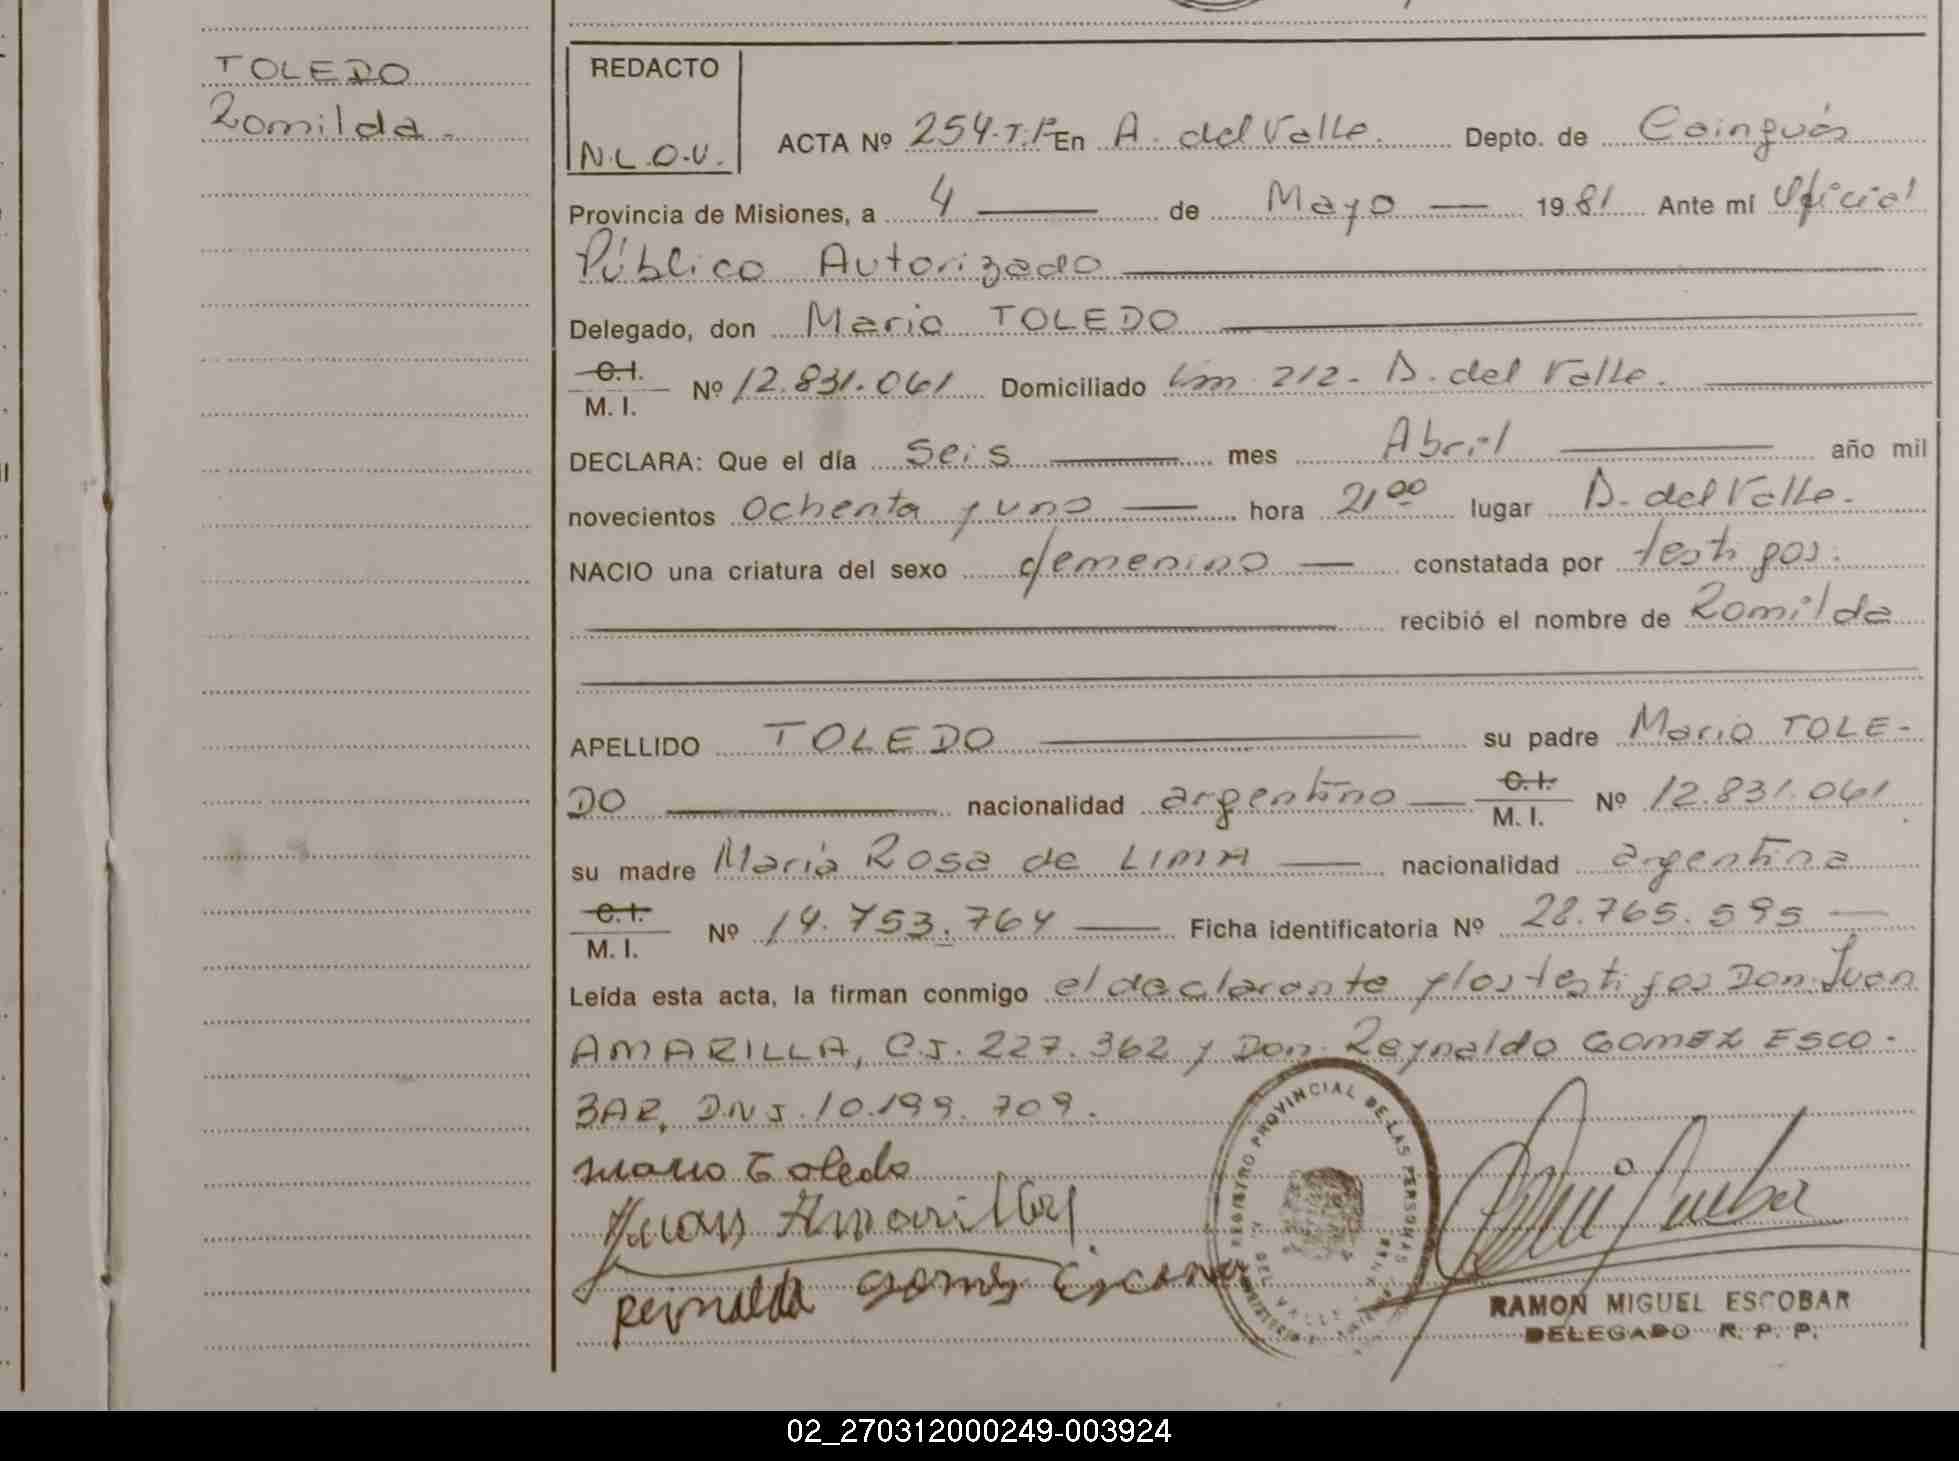 TOLEDO
Romilda.
REDACTO
N.L.O.V.
ACTA Nº 254.T.I°En A. del Valle. Depto. de Cainguás
Provincia de Misiones, a 4 de Mayo 1981 Ante mí Oficial
Público Autorizado
Delegado, don Mario TOLEDO
C.I.
M. I. Nº 12.831.061 Domiciliado km 212- A. del Valle.
DECLARA: Que el día seis mes Abril año mil
novecientos ochenta y uno hora 21⁰⁰ lugar A. del Valle.
NACIO una criatura del sexo femenino constatada por testigos.
recibió el nombre de Romilda
APELLIDO TOLEDO su padre Mario TOLE-
DO nacionalidad argentino C.I. M. I. Nº 12.831.061
su madre Maria Rosa de LIMA nacionalidad argentina
C.I.
M. I. Nº 14.753.764 Ficha identificatoria Nº 28.765.595
Leída esta acta, la firman conmigo el declarante y los testigos Don Juan
AMARILLA, C.I. 227.362 y Don Reynaldo GOMEZ ESCO-
BAR, D.N.I. 10.199.709.
Mario Toledo
Juan Amarilla
Reinaldo Gomes Escobar
REGISTRO PROVINCIAL DE LAS PERSONAS
DEL VALLE
RAMON MIGUEL ESCOBAR
DELEGADO R. P. P.
02_270312000249-003924